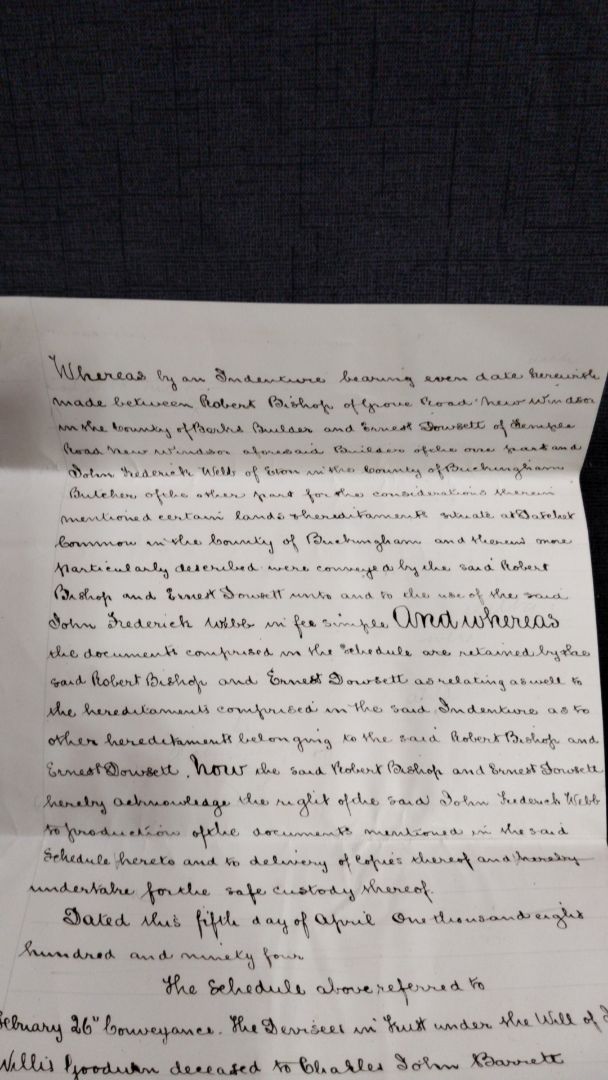 Whereas by an Indenture bearing even date herewith
made between Robert Bishop of Grove Road New Windsor
in the County of Berks Builder and Ernest Dowsett of Temple
Road New Windsor aforesaid Builder of the one part and
John Frederick Webb of Eton in the County of Buckingham
Butcher of the other part for the considerations therein
mentioned certain lands & hereditaments situate at Datchet
Common in the County of Buckingham and therein more
particularly described were conveyed by the said Robert
Bishop and Ernest Dowsett unto and to the use of the said
John Frederick Webb in fee simple And whereas
the documents comprised in the Schedule are retained by the
said Robert Bishop and Ernest Dowsett as relating as well to
the hereditaments comprised in the said Indenture as to
other hereditaments belonging to the said Robert Bishop and
Ernest Dowsett. Now the said Robert Bishop and Ernest Dowsett
hereby acknowledge the right of the said John Frederick Webb
to production of the documents mentioned in the said
Schedule hereto and to delivery of Copies thereof and hereby
undertake for the safe custody thereof.
Dated this fifth day of April One thousand eight
hundred and ninety four
The Schedule above referred to
February 26" Conveyance. The Devisees in Trust under the Will of
Willis Goodwin deceased to Charles John Barrett